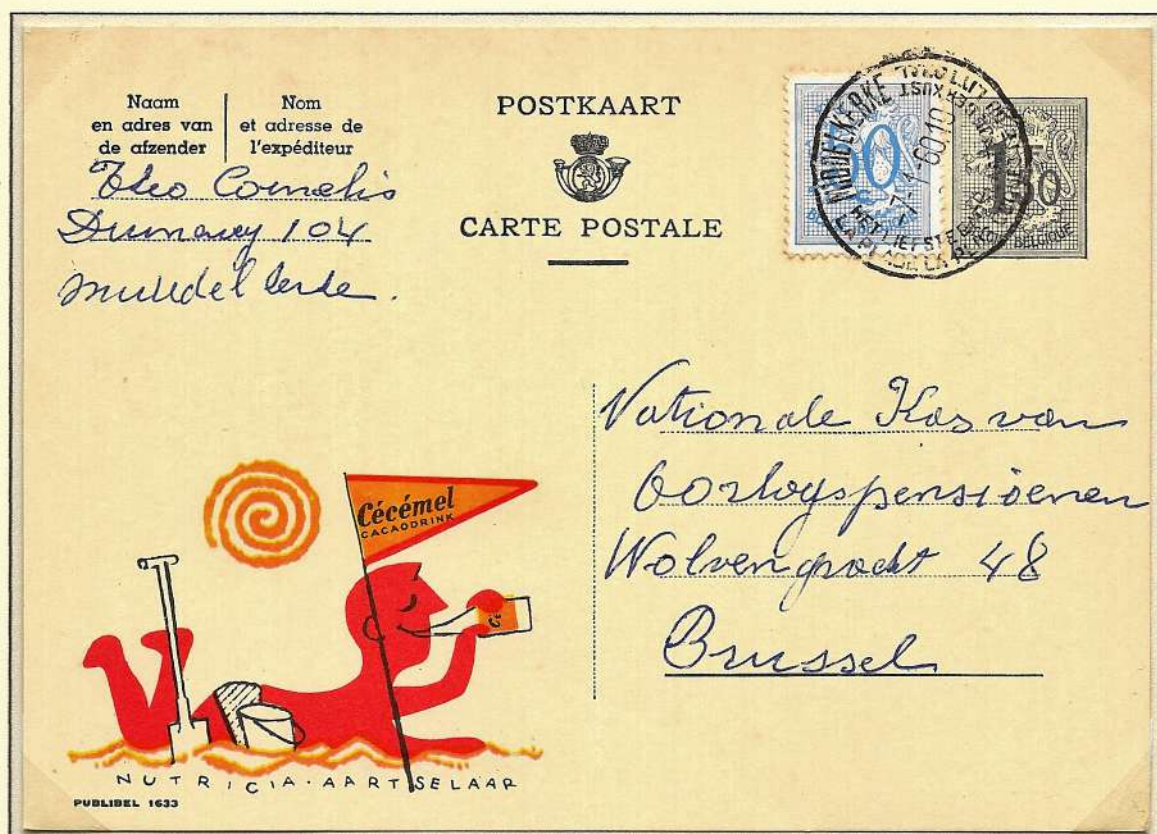 Naam
en adres van
de afzender
Nom
et adresse de
l'expéditeur
Theo Cornelis
104
POSTKAART
CARTE POSTALE
MIDDELKERKE
HET LIEFSTE
LA PLAGE LA
50
1F50
BELGIQUE
Nationale Kas van
Oorlogspensioenen
Wolvengracht 48
Brussel
Cécémel
CACAODRINK
Cé
NUTRICIA·AARTSELAAR
PUBLIBEL 1633